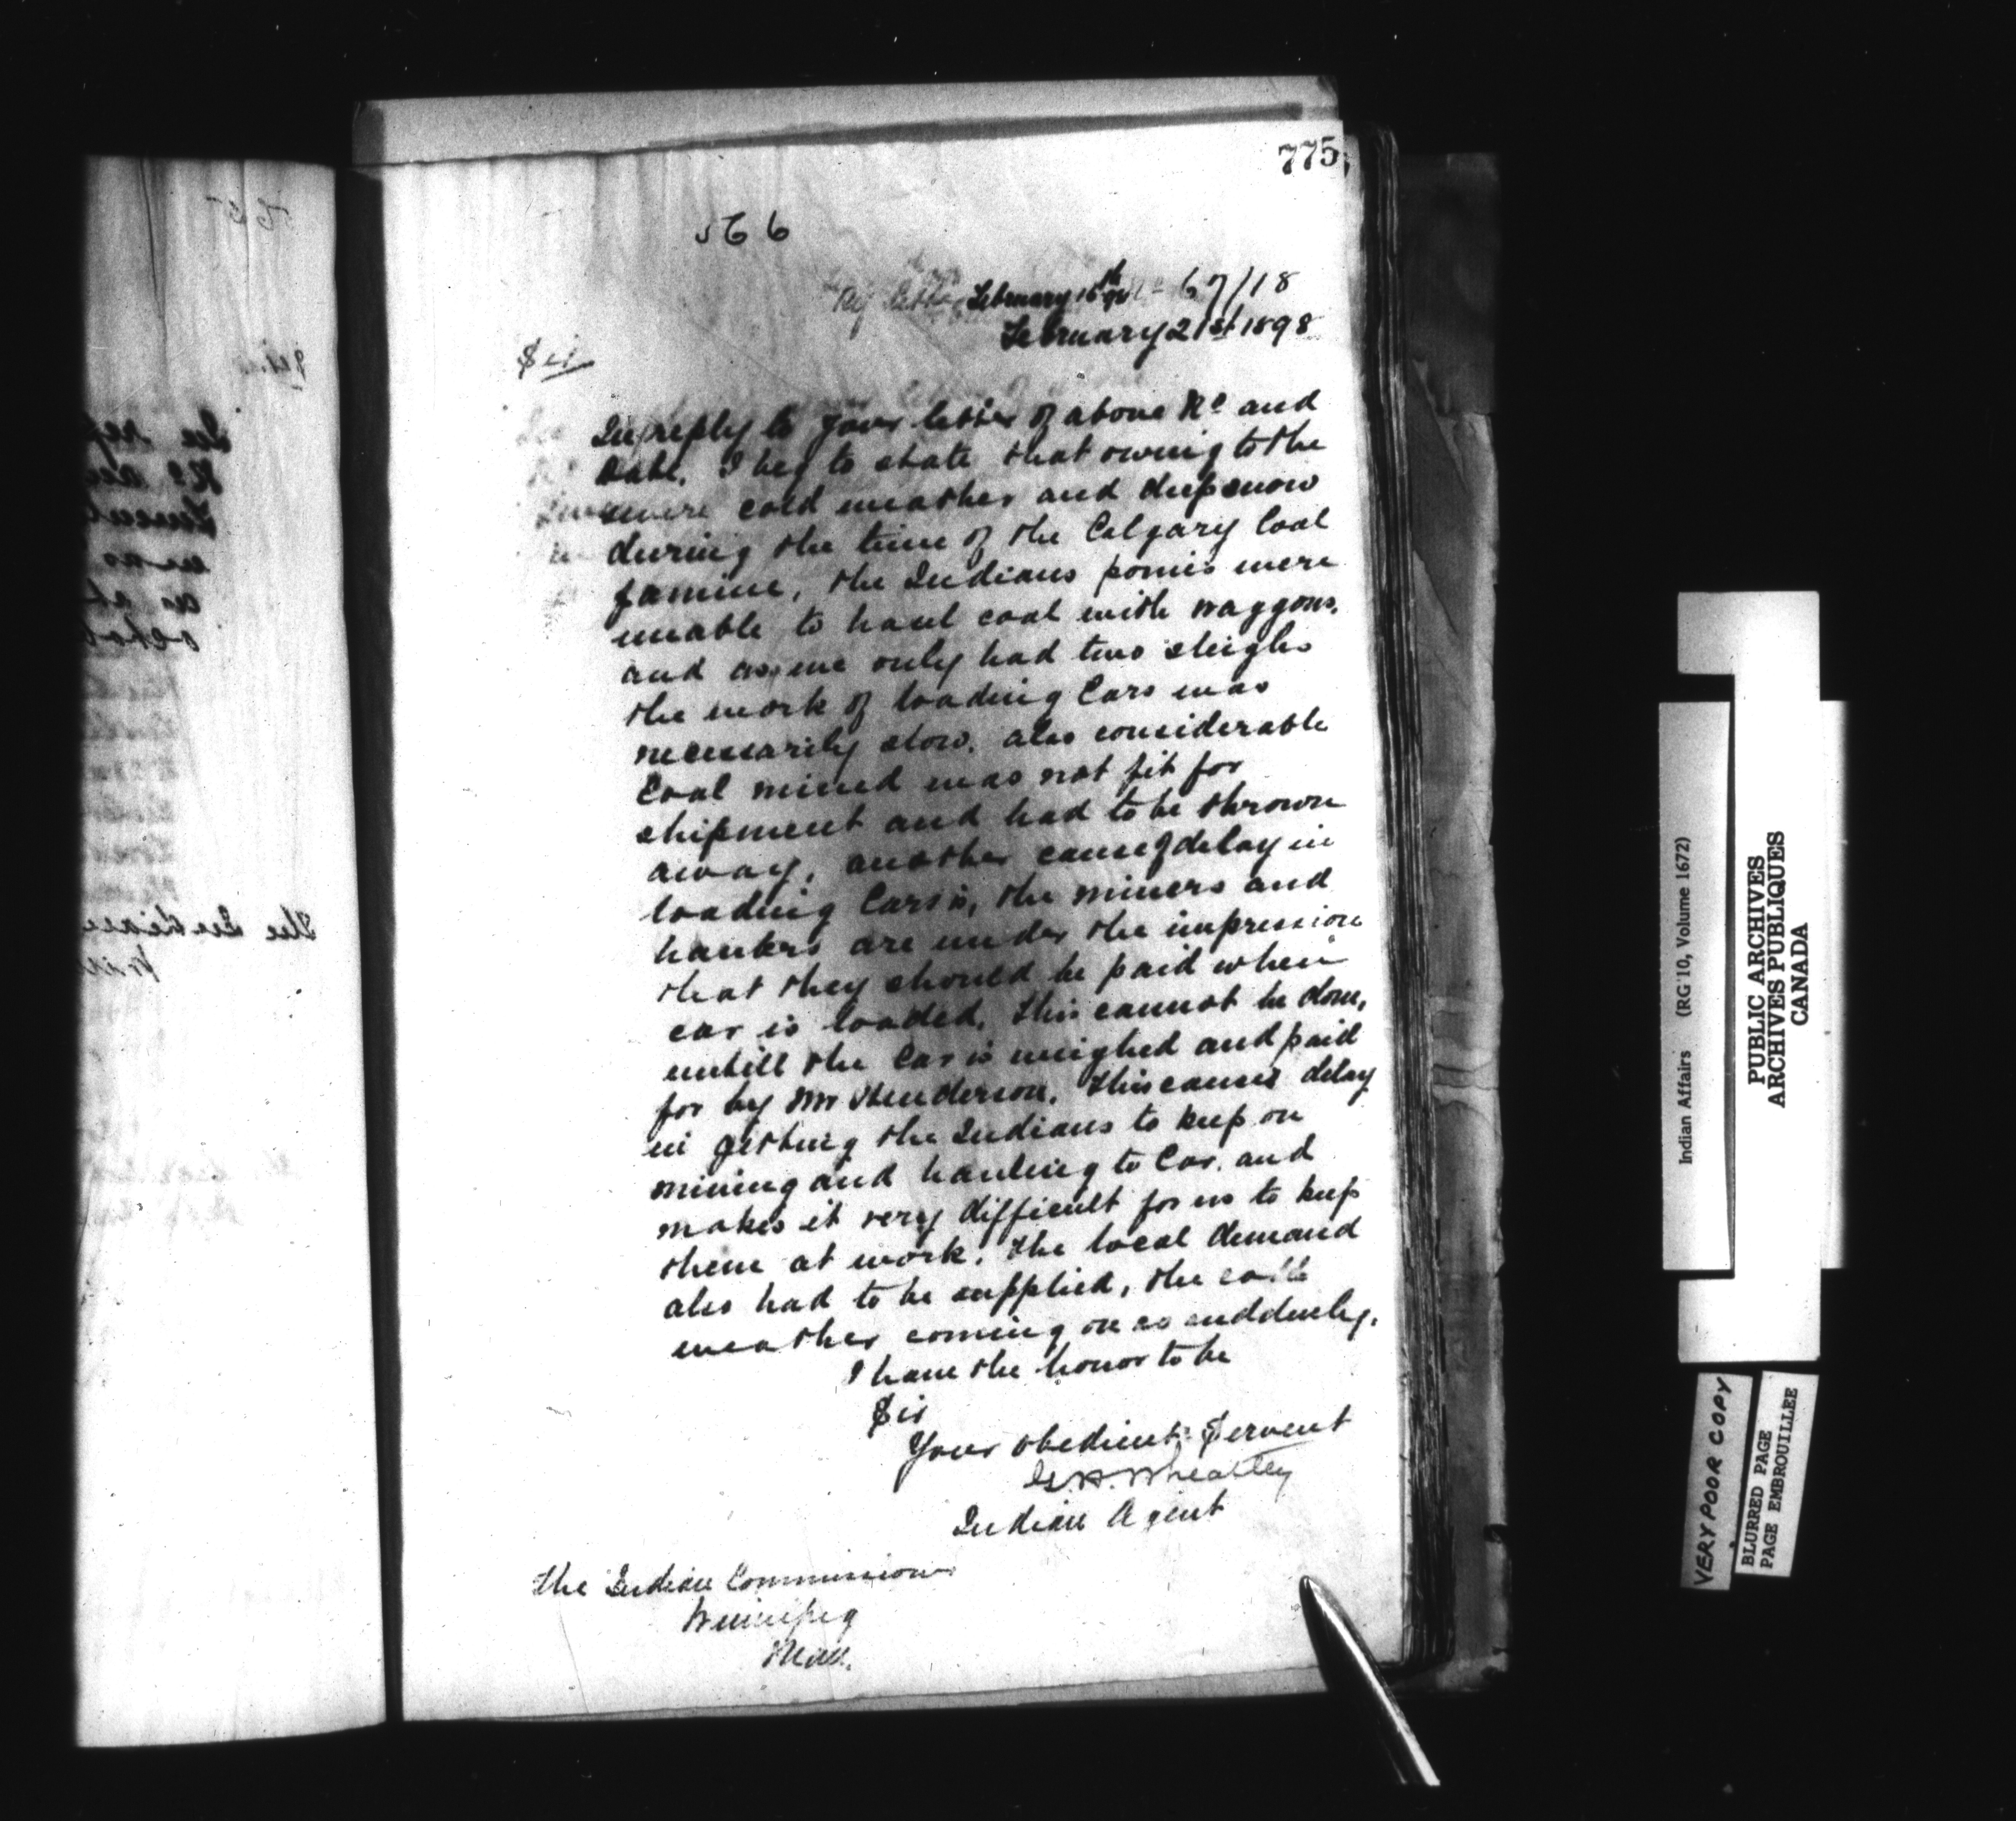 775
566
Ref letter February 15th 98 67/18
February 21st 1898
Sir
In reply to your letter of above No and
date, I beg to state that owing to the
severe cold weather and deep snow
during the time of the Calgary Coal
famine, the Indians ponies were
unable to haul coal with waggons,
and as we only had two sleighs
the work of loading Cars was
necessarily slow. also considerable
Coal mined was not fit for
shipment and had to be thrown
away, another cause of delay in
loading Cars is, the miners and
haulers are under the impression
that they should be paid when
car is loaded, this cannot be done,
untill the Car is weighed and paid
for by Mr Henderson, this causes delay
in getting the Indians to keep on
mining and hauling to Car. and
makes it very difficult for us to keep
them at work. The local demand
also had to be supplied, the cold
weather coming on so suddenly.
I have the honor to be
Sir
Your obedient Servent
G.H. Wheatley
Indian Agent
The Indian Commissioner
Winnipeg
Man.
Indian Affairs (RG 10, Volume 1672)
PUBLIC ARCHIVES
ARCHIVES PUBLIQUES
CANADA
VERY POOR COPY
BLURRED PAGE
PAGE EMBROUILLEE